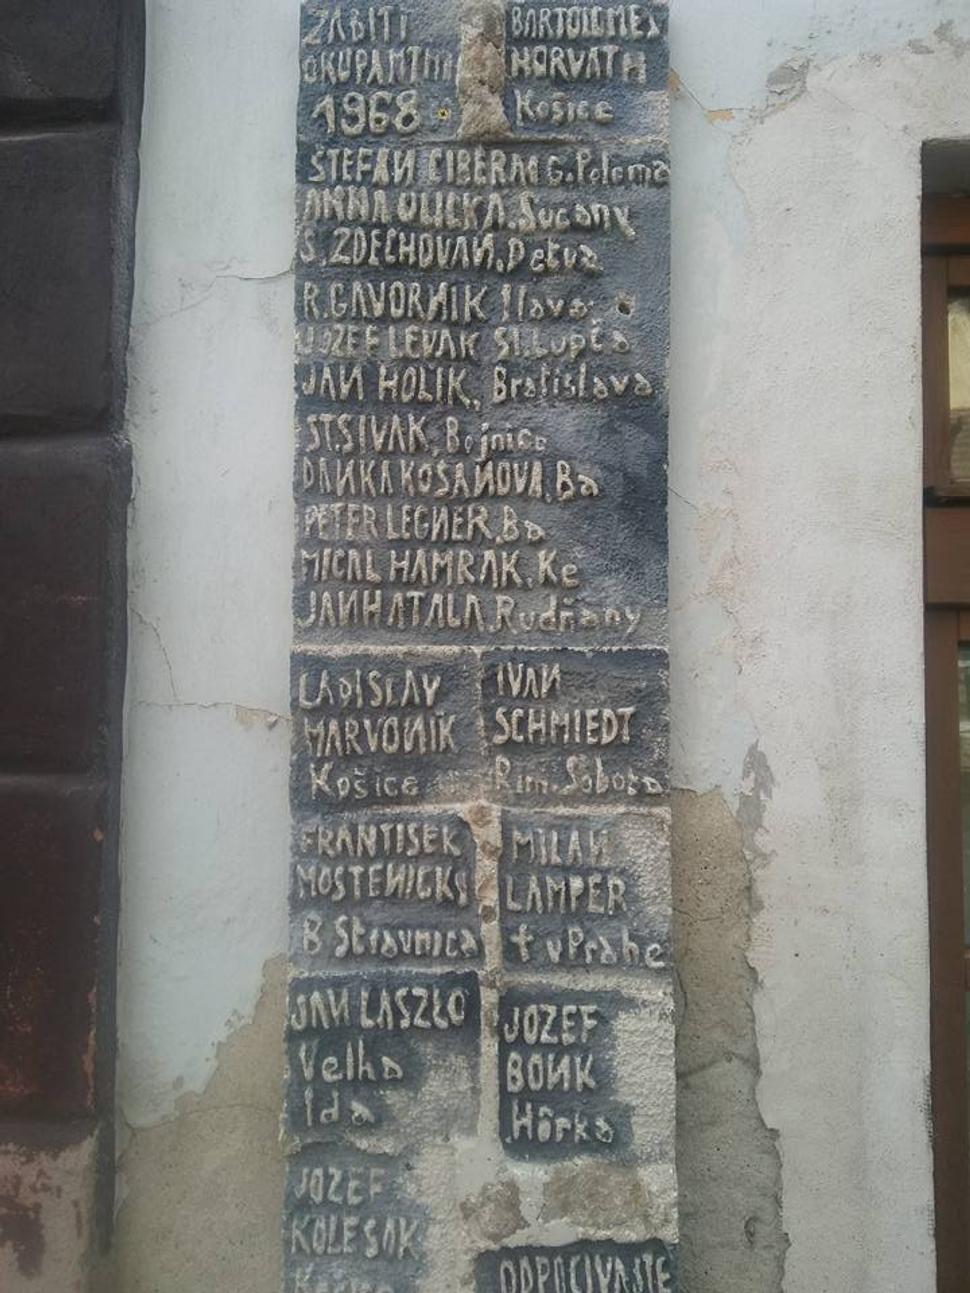 ZABITI
OKUPANTMI
1968
BARTOLOMEJ
HORVATH
Košice
ŠTEFAN CIBERAJ G. Poloma
ANNA OLICKA. Sucany
S. ZDECHOVAN. Detva
R. GAVORNIK Ilava
JOZEF LEVAK Sl. Lupča
JAN HOLIK, Bratislava
ST. SIVAK, Bojnice
DANKA KOŠANOVA. Ba
PETER LEGNER. Ba
MICAL HAMRAK. Ke
JAN HATALA. Rudňany
LADISLAV
MARVONIK
Košice
IVAN
SCHMIEDT
Rim. Sobota
FRANTISEK
MOSTENICKY
B Stiavnica
MILAN
LAMPER
† v Prahe
JAN LASZLO
Velka
Ida
JOZEF
BONK
Hôrka
JOZEF
KOLESAK
ODPOCIVAJTE